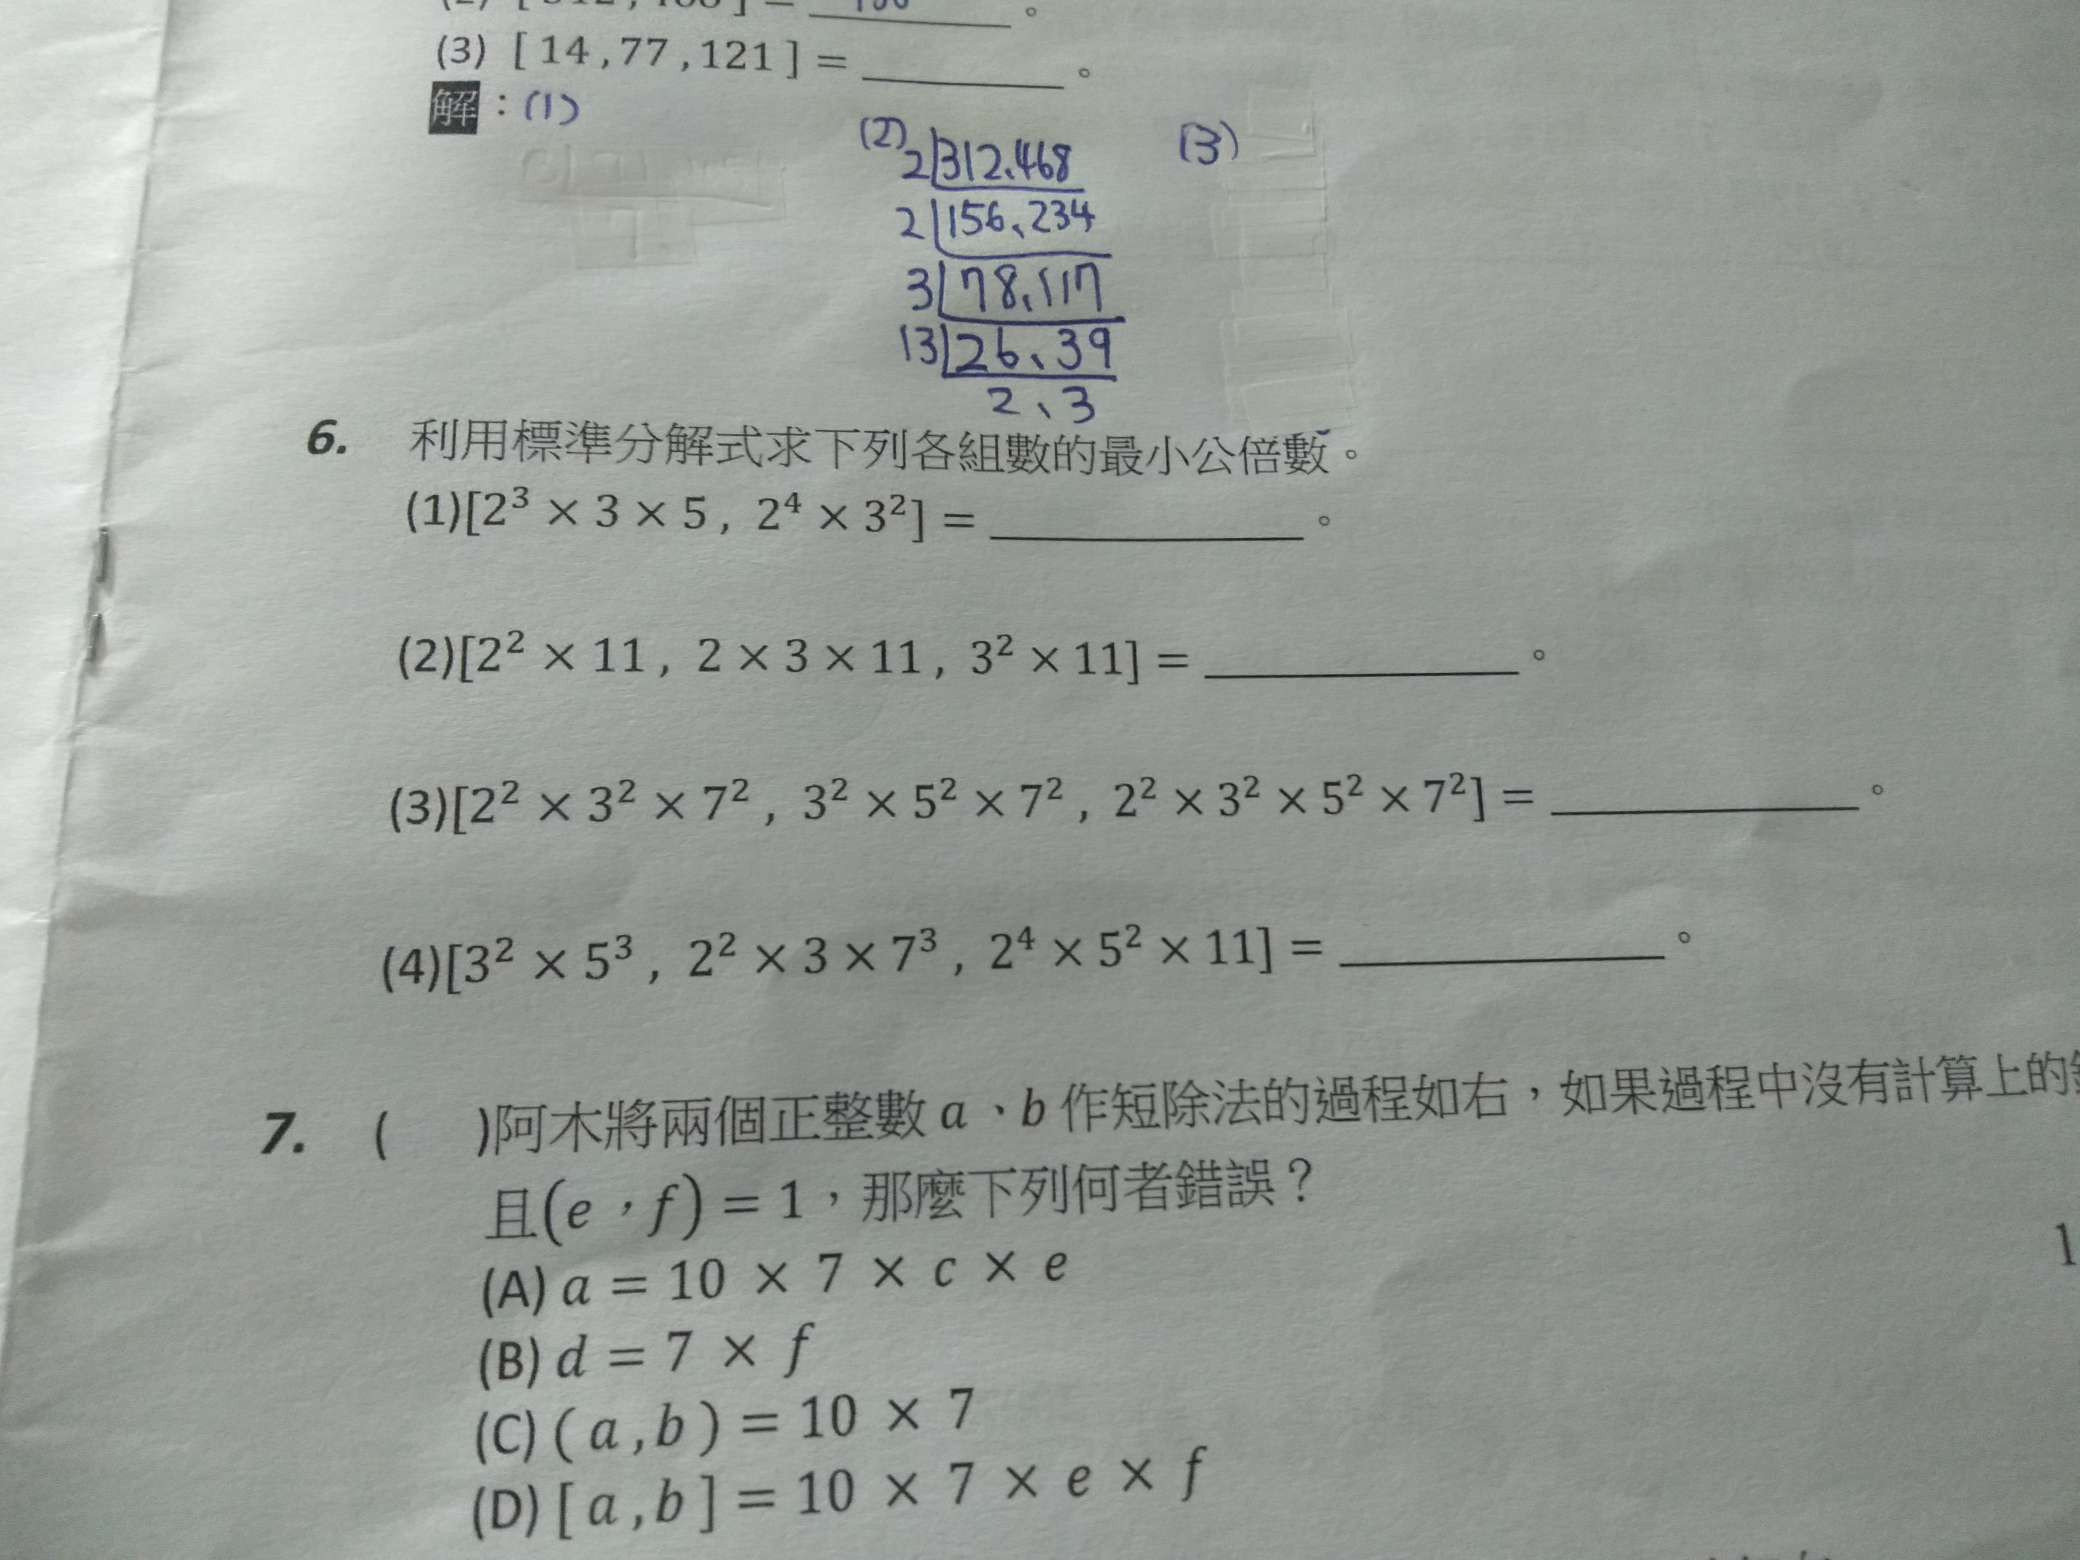 (3) [ 14 , 77 , 121 ] = ________ 。
解：(1)
(2) 2 312、468
2 156、234
3 78、117
13 26、39
2、3
(3)
6. 利用標準分解式求下列各組數的最小公倍數。
(1)[2³ × 3 × 5 , 2⁴ × 3²] = ________ 。
(2)[2² × 11 , 2 × 3 × 11 , 3² × 11] = ________ 。
(3)[2² × 3² × 7² , 3² × 5² × 7² , 2² × 3² × 5² × 7²] = ________ 。
(4)[3² × 5³ , 2² × 3 × 7³ , 2⁴ × 5² × 11] = ________ 。
7. (　　)阿木將兩個正整數 a、b 作短除法的過程如右，如果過程中沒有計算上的
且(e，f) = 1，那麼下列何者錯誤？
(A) a = 10 × 7 × c × e
(B) d = 7 × f
(C) ( a , b ) = 10 × 7
(D) [ a , b ] = 10 × 7 × e × f
1